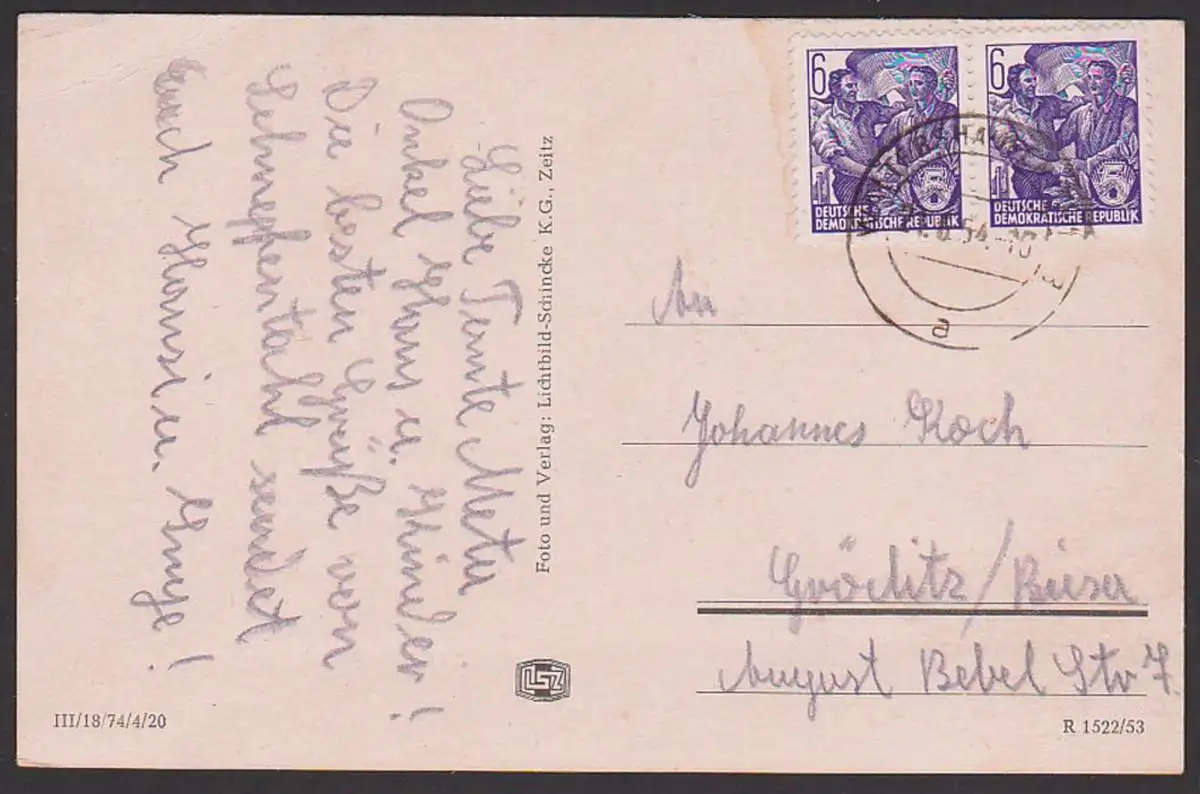 Liebe Tante Meta
Onkel Hans u. Kinder!
Die besten Grüße von
Schnepfental sendet
Euch Hansi u. Inge!
Foto und Verlag: Lichtbild-Schincke K.G., Zeitz
LSZ
III/18/74/4/20
6
DEUTSCHE
DEMOKRATISCHE REPUBLIK
5
6
DEUTSCHE
DEMOKRATISCHE REPUBLIK
5
54
a
An
Johannes Koch
Gröditz/Rieser
August Bebel Str 7.
R 1522/53